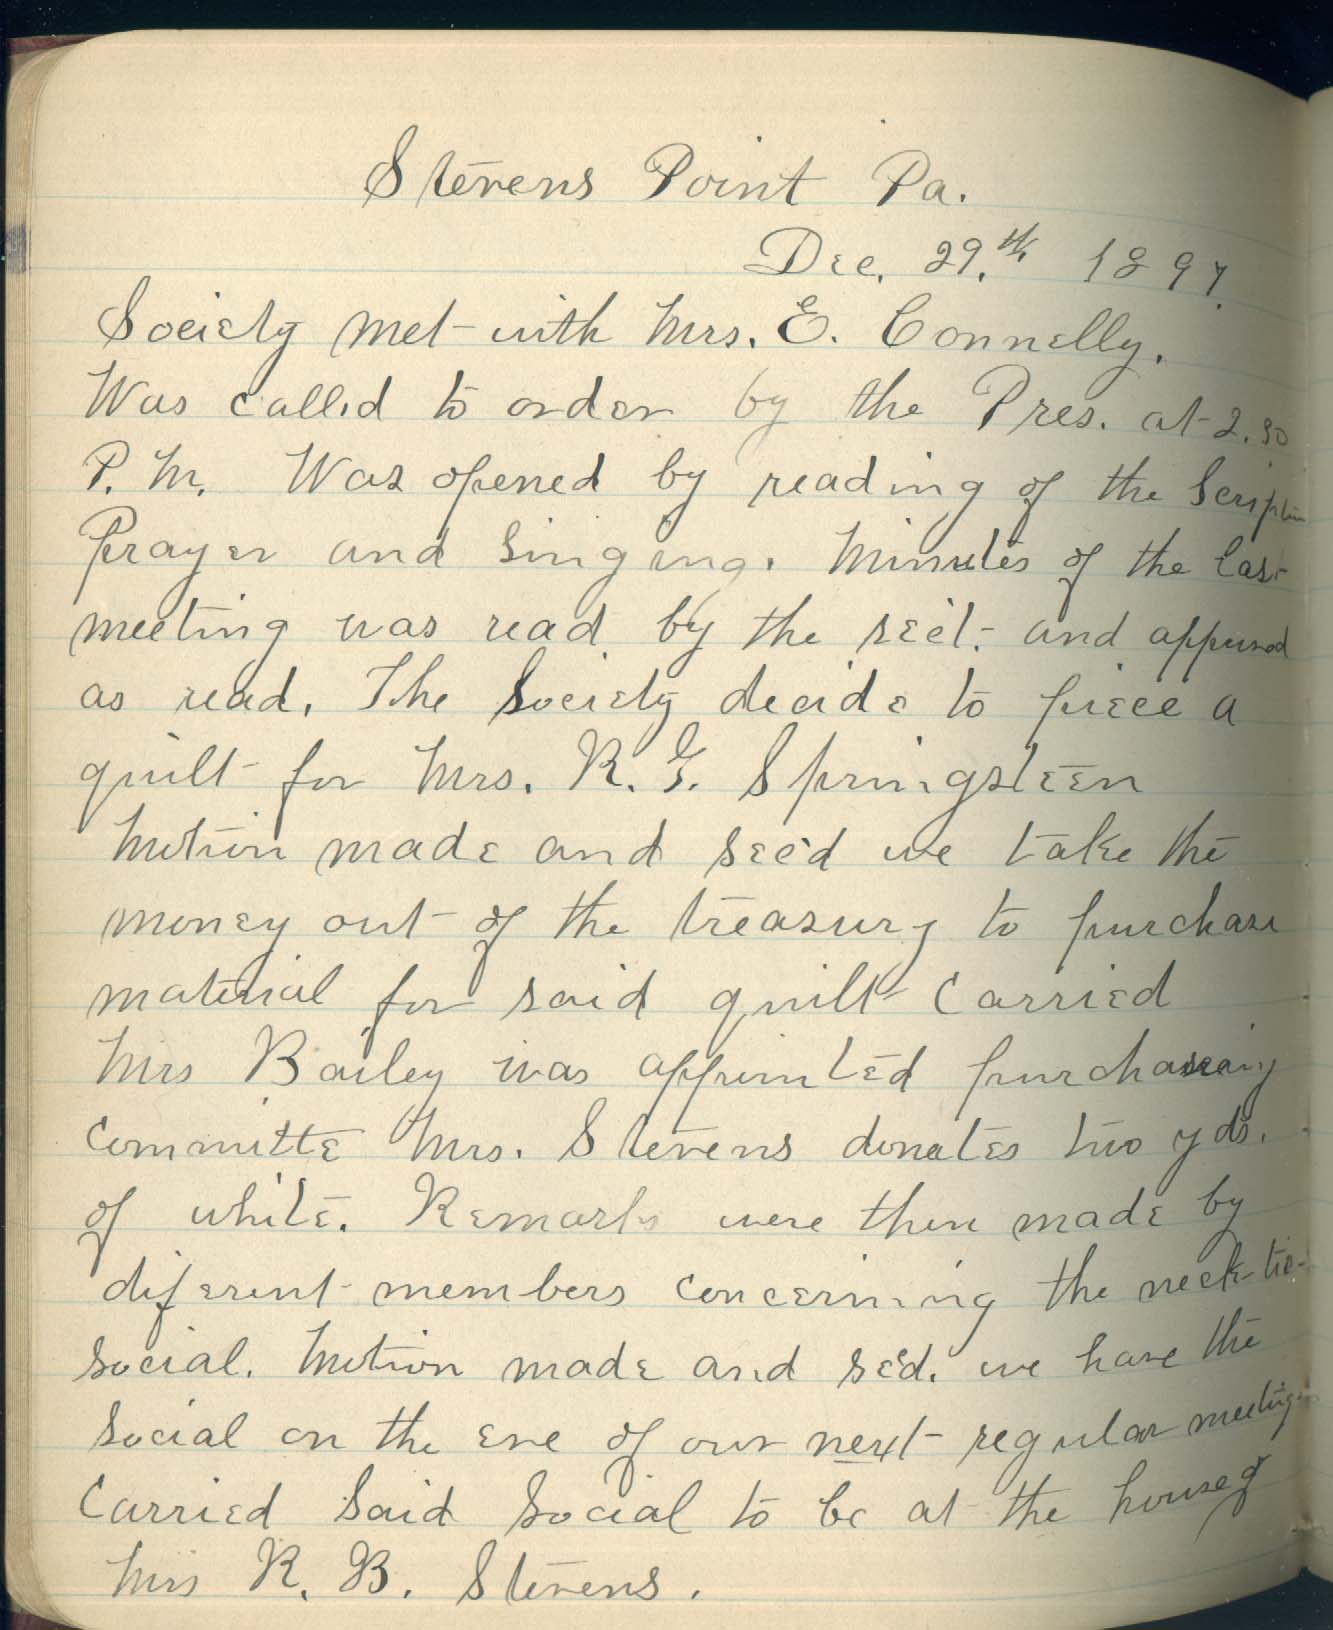 Stevens Point Pa.
Dec. 29.th 1897.
Society met with Mrs. E. Connelly.
Was called to order by the Pres. at 2.30
P.M. Was opened by reading of the Scripture
Prayer and singing. Minutes of the last
meeting was read by the sec't. and approved
as read. The Society decide to piece a
quilt for Mrs. R. G. Springsteen
Motion made and sec'd we take the
money out of the treasury to purchase
material for said quilt Carried
Mrs Bailey was appointed purchaseing
committe Mrs. Stevens donates two yds.
of white. Remarks were then made by
diferent members concerning the neck-tie-
social. Motion made and se'd. we have the
social on the eve of our next regular meeting-
Carried Said Social to be at the house of
Mrs R. B. Stevens.